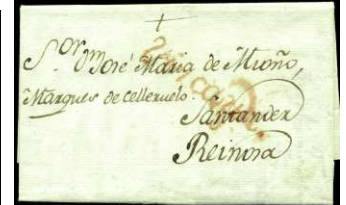 Sor. Dn José Maria de Mioño,
Marques de celleruelo.
Santander
Reinosa